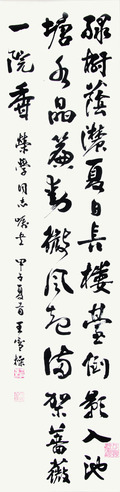 綠樹蔭濃夏日長樓臺倒影入池
塘水晶簾動微風起滿架薔薇
一院香
榮學同志囑書 甲子夏首 王